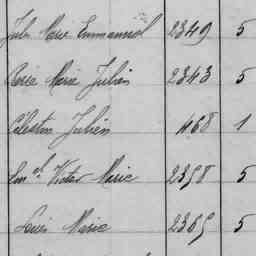 Jules Marie Emmanuel 2349 5
Marie Julien 2343 5
Célestin Julien 468 1
Em.el Victor Marie 2358 5
Louis Marie 2365 5